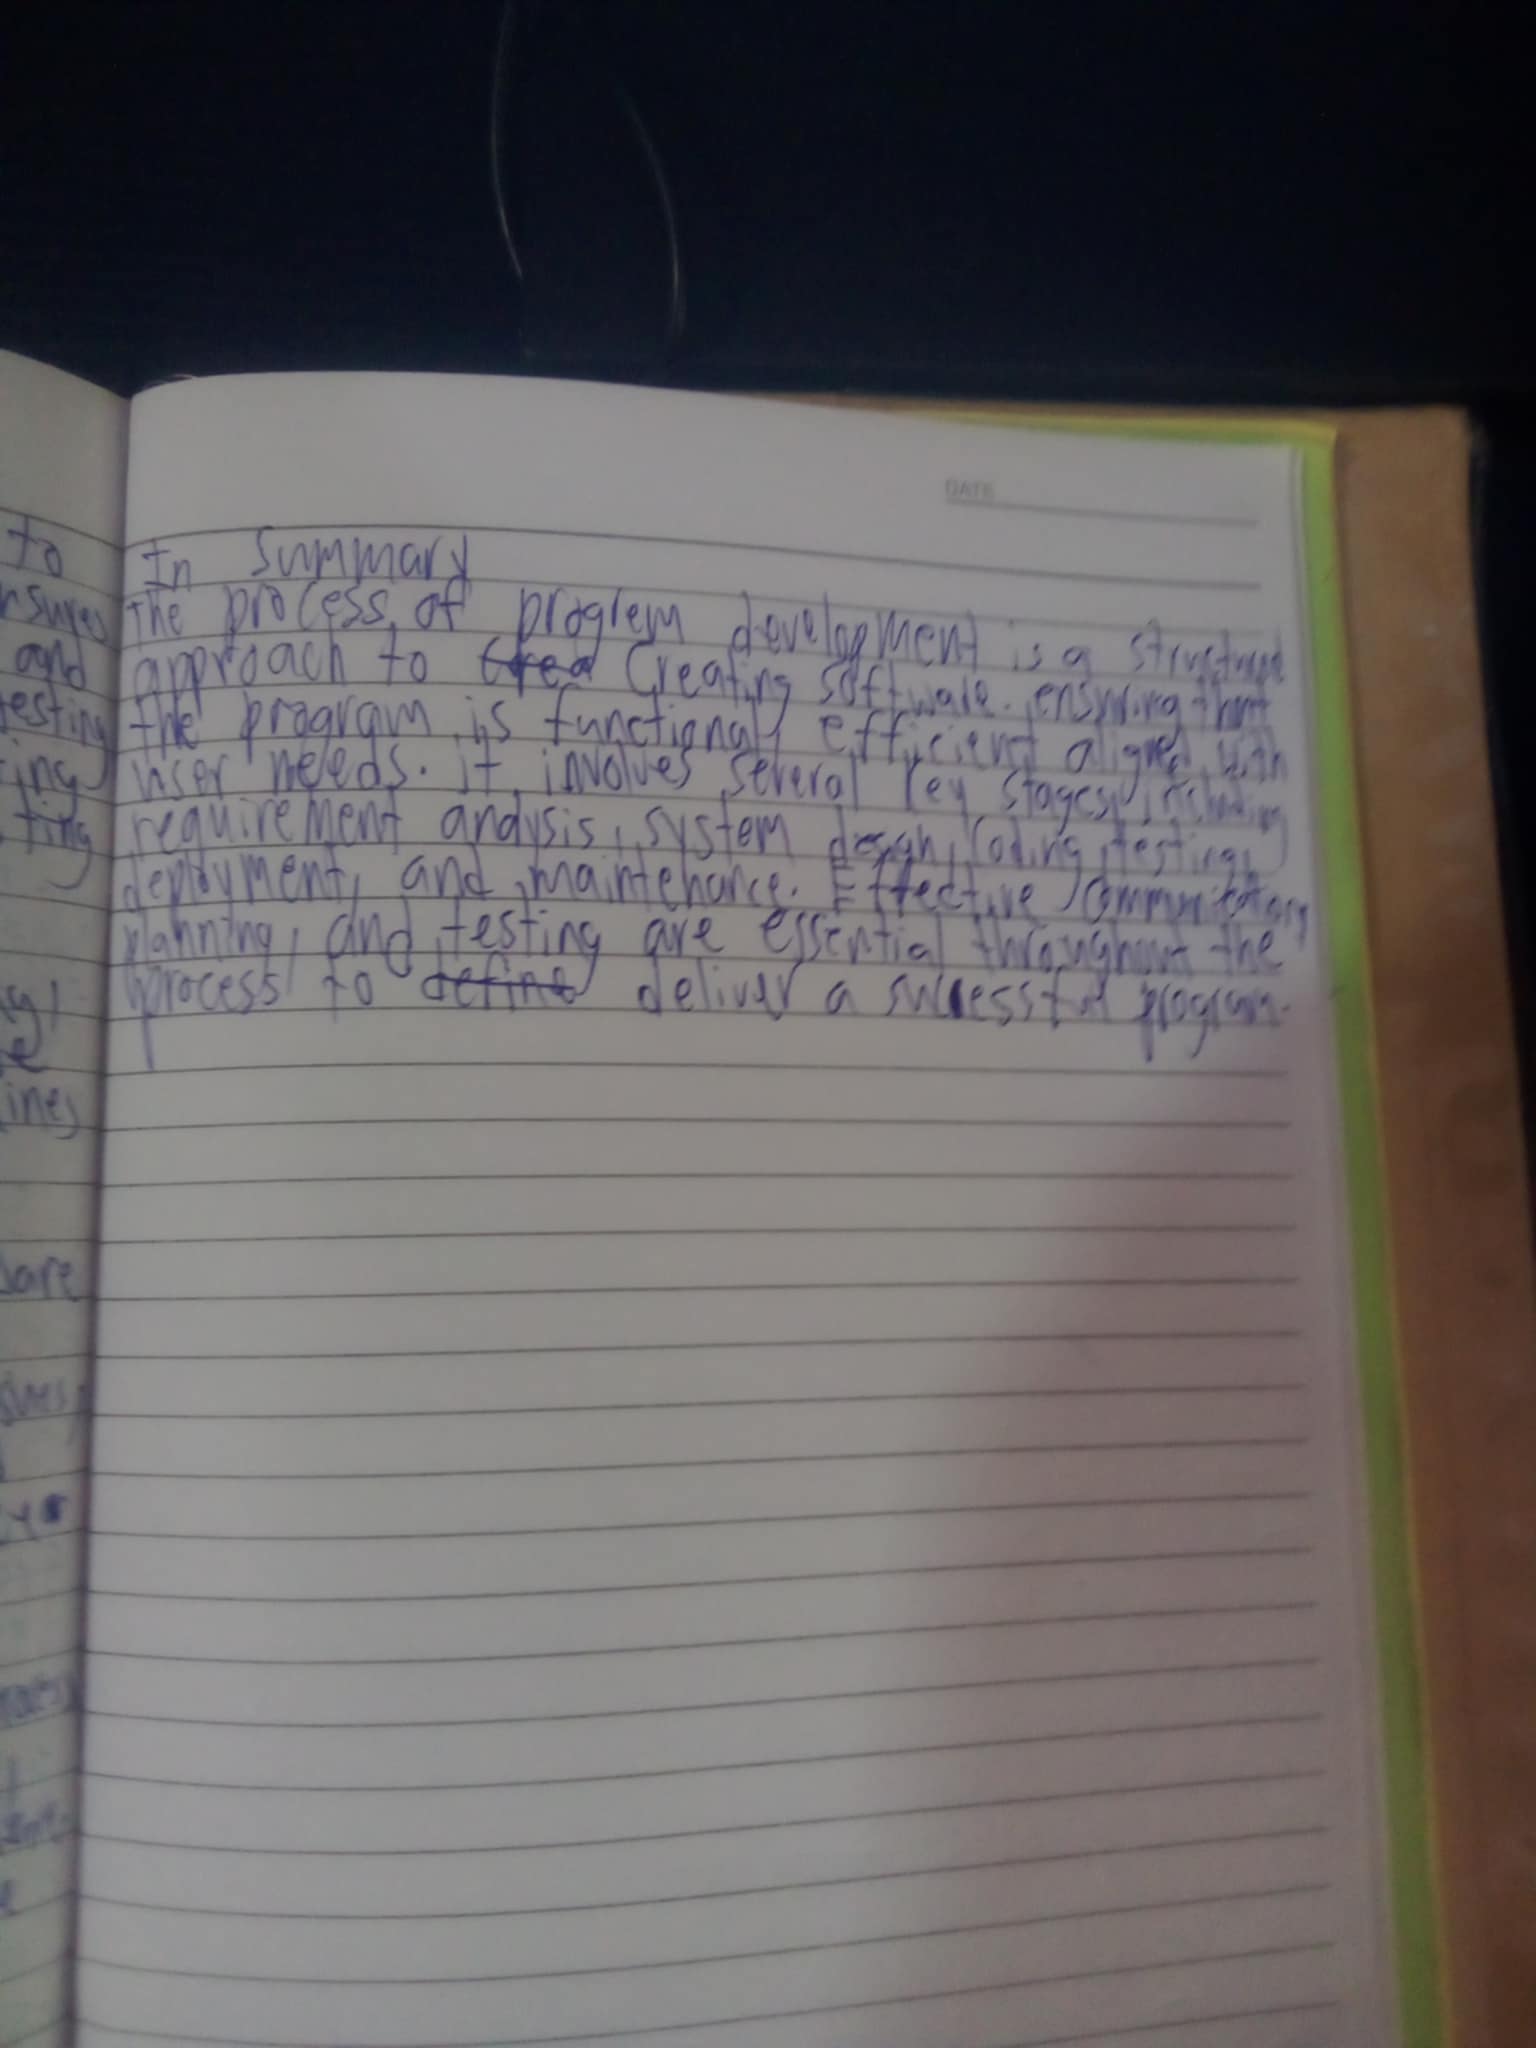 DATE
to
In Summary
nsures
the process of progrem development is a structured
and
approach to Crea Creating software. ensuring that
testing
the program is functional efficient aligned with
ing
user needs. it involves several key stages, including
ting
requirement analysis, system design, Coding, testing,
deployment, and maintenance. Effective Communication,
planning, and testing are essential throughout the
process to define deliver a successful program.
ines